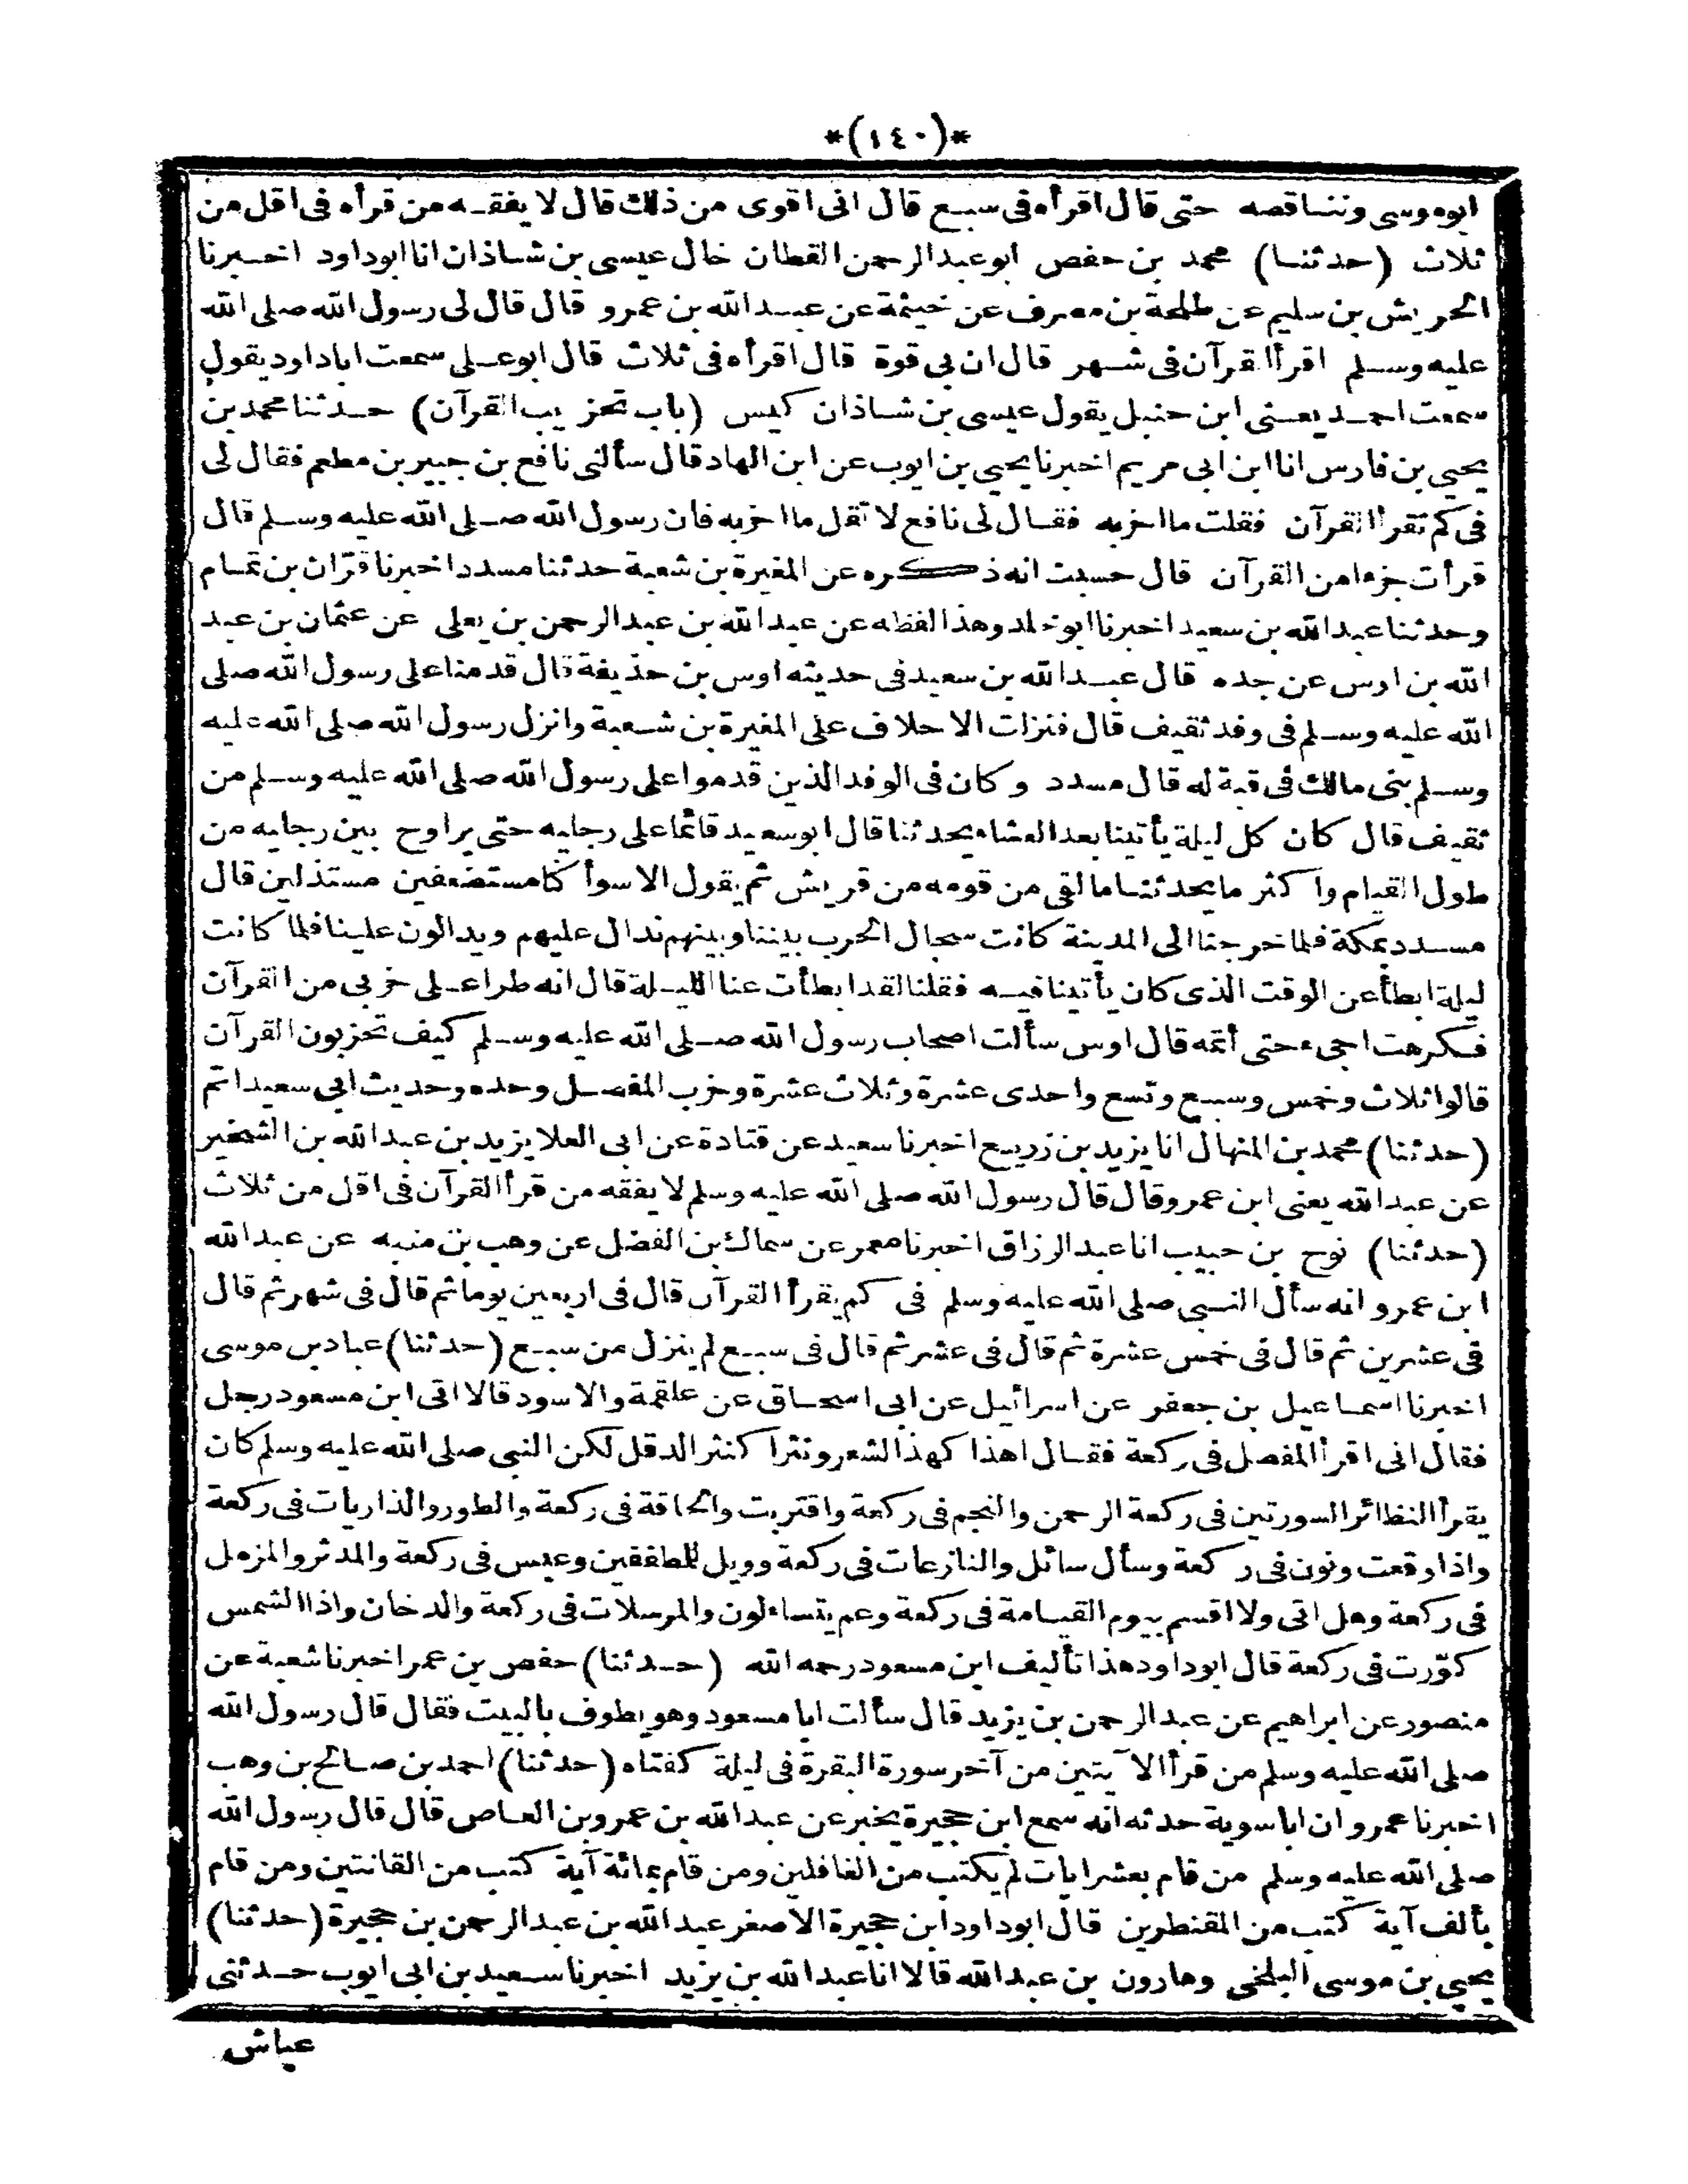 *(١٤٠)*
ابوموسى وتناقصه حتى قال اقرأه فى سبع قال انى اقوى من ذلك قال لا يفقه من قرأه فى اقل من
ثلاث (حدثنا) محمد بن حفص ابو عبد الرحمن القطان خال عيسى بن شاذان انا ابوداود اخبرنا
الحريش بن سليم عن طلحة بن مصرف عن خيثمة عن عبد الله بن عمرو قال قال لى رسول الله صلى الله
عليه وسلم اقرأ القرآن فى شهر قال ان بى قوة قال اقرأه فى ثلاث قال ابو على سمعت اباداود يقول
سمعت احمد يعنى ابن حنبل يقول عيسى بن شاذان كيس (باب تحزيب القرآن) حدثنا محمد بن
يحيى بن فارس انا ابن ابى مريم اخبرنا يحيى بن ايوب عن ابن الهاد قال سألنى نافع بن جبير بن مطعم فقال لى
فى كم تقرأ القرآن فقلت ما احزبه فقال لى نافع لا تقل ما احزبه فان رسول الله صلى الله عليه وسلم قال
قرأت جزءا من القرآن قال حسبت انه ذكره عن المغيرة بن شعبة حدثنا مسدد اخبرنا قرّان بن تمام
وحدثنا عبد الله بن سعيد اخبرنا ابو خلد وهذا لفظه عن عبد الله بن عبد الرحمن بن يعلى عن عثمان بن عبد
الله بن اوس عن جده قال عبد الله بن سعيد فى حديثه اوس بن حذيفة قال قدمنا على رسول الله صلى
الله عليه وسلم فى وفد ثقيف قال فنزلت الاحلاف على المغيرة بن شعبة وانزل رسول الله صلى الله عليه
وسلم بنى مالك فى قبة له قال مسدد وكان فى الوفد الذين قدموا على رسول الله صلى الله عليه وسلم من
ثقيف قال كان كل ليلة يأتينا بعد العشاء يحدثنا قال ابو سعيد قائما على رجليه حتى يراوح بين رجليه من
طول القيام وأكثر ما يحدثنا ما لقى من قومه من قريش ثم يقول الاسوأ كنا مستضعفين مستذلين قال
مسدد بمكة فلما خرجنا الى المدينة كانت سجال الحرب بيننا وبينهم ندال عليهم ويدالون علينا فلما كانت
ليلة ابطأ عن الوقت الذى كان يأتينا فيه فقلنا لقد ابطأت عنا الليلة قال انه طرا على حزبى من القرآن
فكرهت اجىء حتى أتمه قال اوس سألت اصحاب رسول الله صلى الله عليه وسلم كيف تحزبون القرآن
قالوا ثلاث وخمس وسبع وتسع واحدى عشرة وثلاث عشرة وحزب المفصل وحده وحديث ابى سعيد اتم
(حدثنا) محمد بن المنهال انا يزيد بن زريع اخبرنا سعيد عن قتادة عن ابى العلا يزيد بن عبد الله بن الشخير
عن عبد الله يعنى ابن عمرو قال قال رسول الله صلى الله عليه وسلم لا يفقه من قرأ القرآن فى اقل من ثلاث
(حدثنا) نوح بن حبيب انا عبد الرزاق اخبرنا معمر عن سماك بن الفضل عن وهب بن منبه عن عبد الله
ابن عمرو انه سأل النبى صلى الله عليه وسلم فى كم يقرأ القرآن قال فى اربعين يوما ثم قال فى شهر ثم قال
فى عشرين ثم قال فى خمس عشرة ثم قال فى عشر ثم قال فى سبع لم ينزل من سبع (حدثنا) عباد بن موسى
اخبرنا اسماعيل بن جعفر عن اسرائيل عن ابى اسحاق عن علقمة والاسود قالا اتى ابن مسعود رجل
فقال انى اقرأ المفصل فى ركعة فقال اهذا كهذ الشعر ونثرا كنثر الدقل لكن النبى صلى الله عليه وسلم كان
يقرأ النظائر السورتين فى ركعة الرحمن والنجم فى ركعة واقتربت والحاقة فى ركعة والطور والذاريات فى ركعة
واذا وقعت ونون فى ركعة وسأل سائل والنازعات فى ركعة وويل للمطففين وعبس فى ركعة والمدثر والمزمل
فى ركعة وهل اتى ولا اقسم بيوم القيامة فى ركعة وعم يتساءلون والمرسلات فى ركعة والدخان واذا الشمس
كوّرت فى ركعة قال ابوداود هذا تأليف ابن مسعود رحمه الله (حدثنا) حفص بن عمر اخبرنا شعبة عن
منصور عن ابراهيم عن عبد الرحمن بن يزيد قال سألت ابا مسعود وهو يطوف بالبيت فقال قال رسول الله
صلى الله عليه وسلم من قرأ الآيتين من آخر سورة البقرة فى ليلة كفتاه (حدثنا) احمد بن صالح بن وهب
اخبرنا عمرو ان ابا سوية حدثه انه سمع ابن حجيرة يخبر عن عبد الله بن عمرو بن العاص قال قال رسول الله
صلى الله عليه وسلم من قام بعشر ايات لم يكتب من الغافلين ومن قام بمائة آية كتب من القانتين ومن قام
بألف آية كتب من المقنطرين قال ابوداود ابن حجيرة الاصغر عبد الله بن عبد الرحمن بن حجيرة (حدثنا)
يحيى بن موسى البلخى وهارون بن عبد الله قالا انا عبد الله بن يزيد اخبرنا سعيد بن ابى ايوب حدثنى
عياش